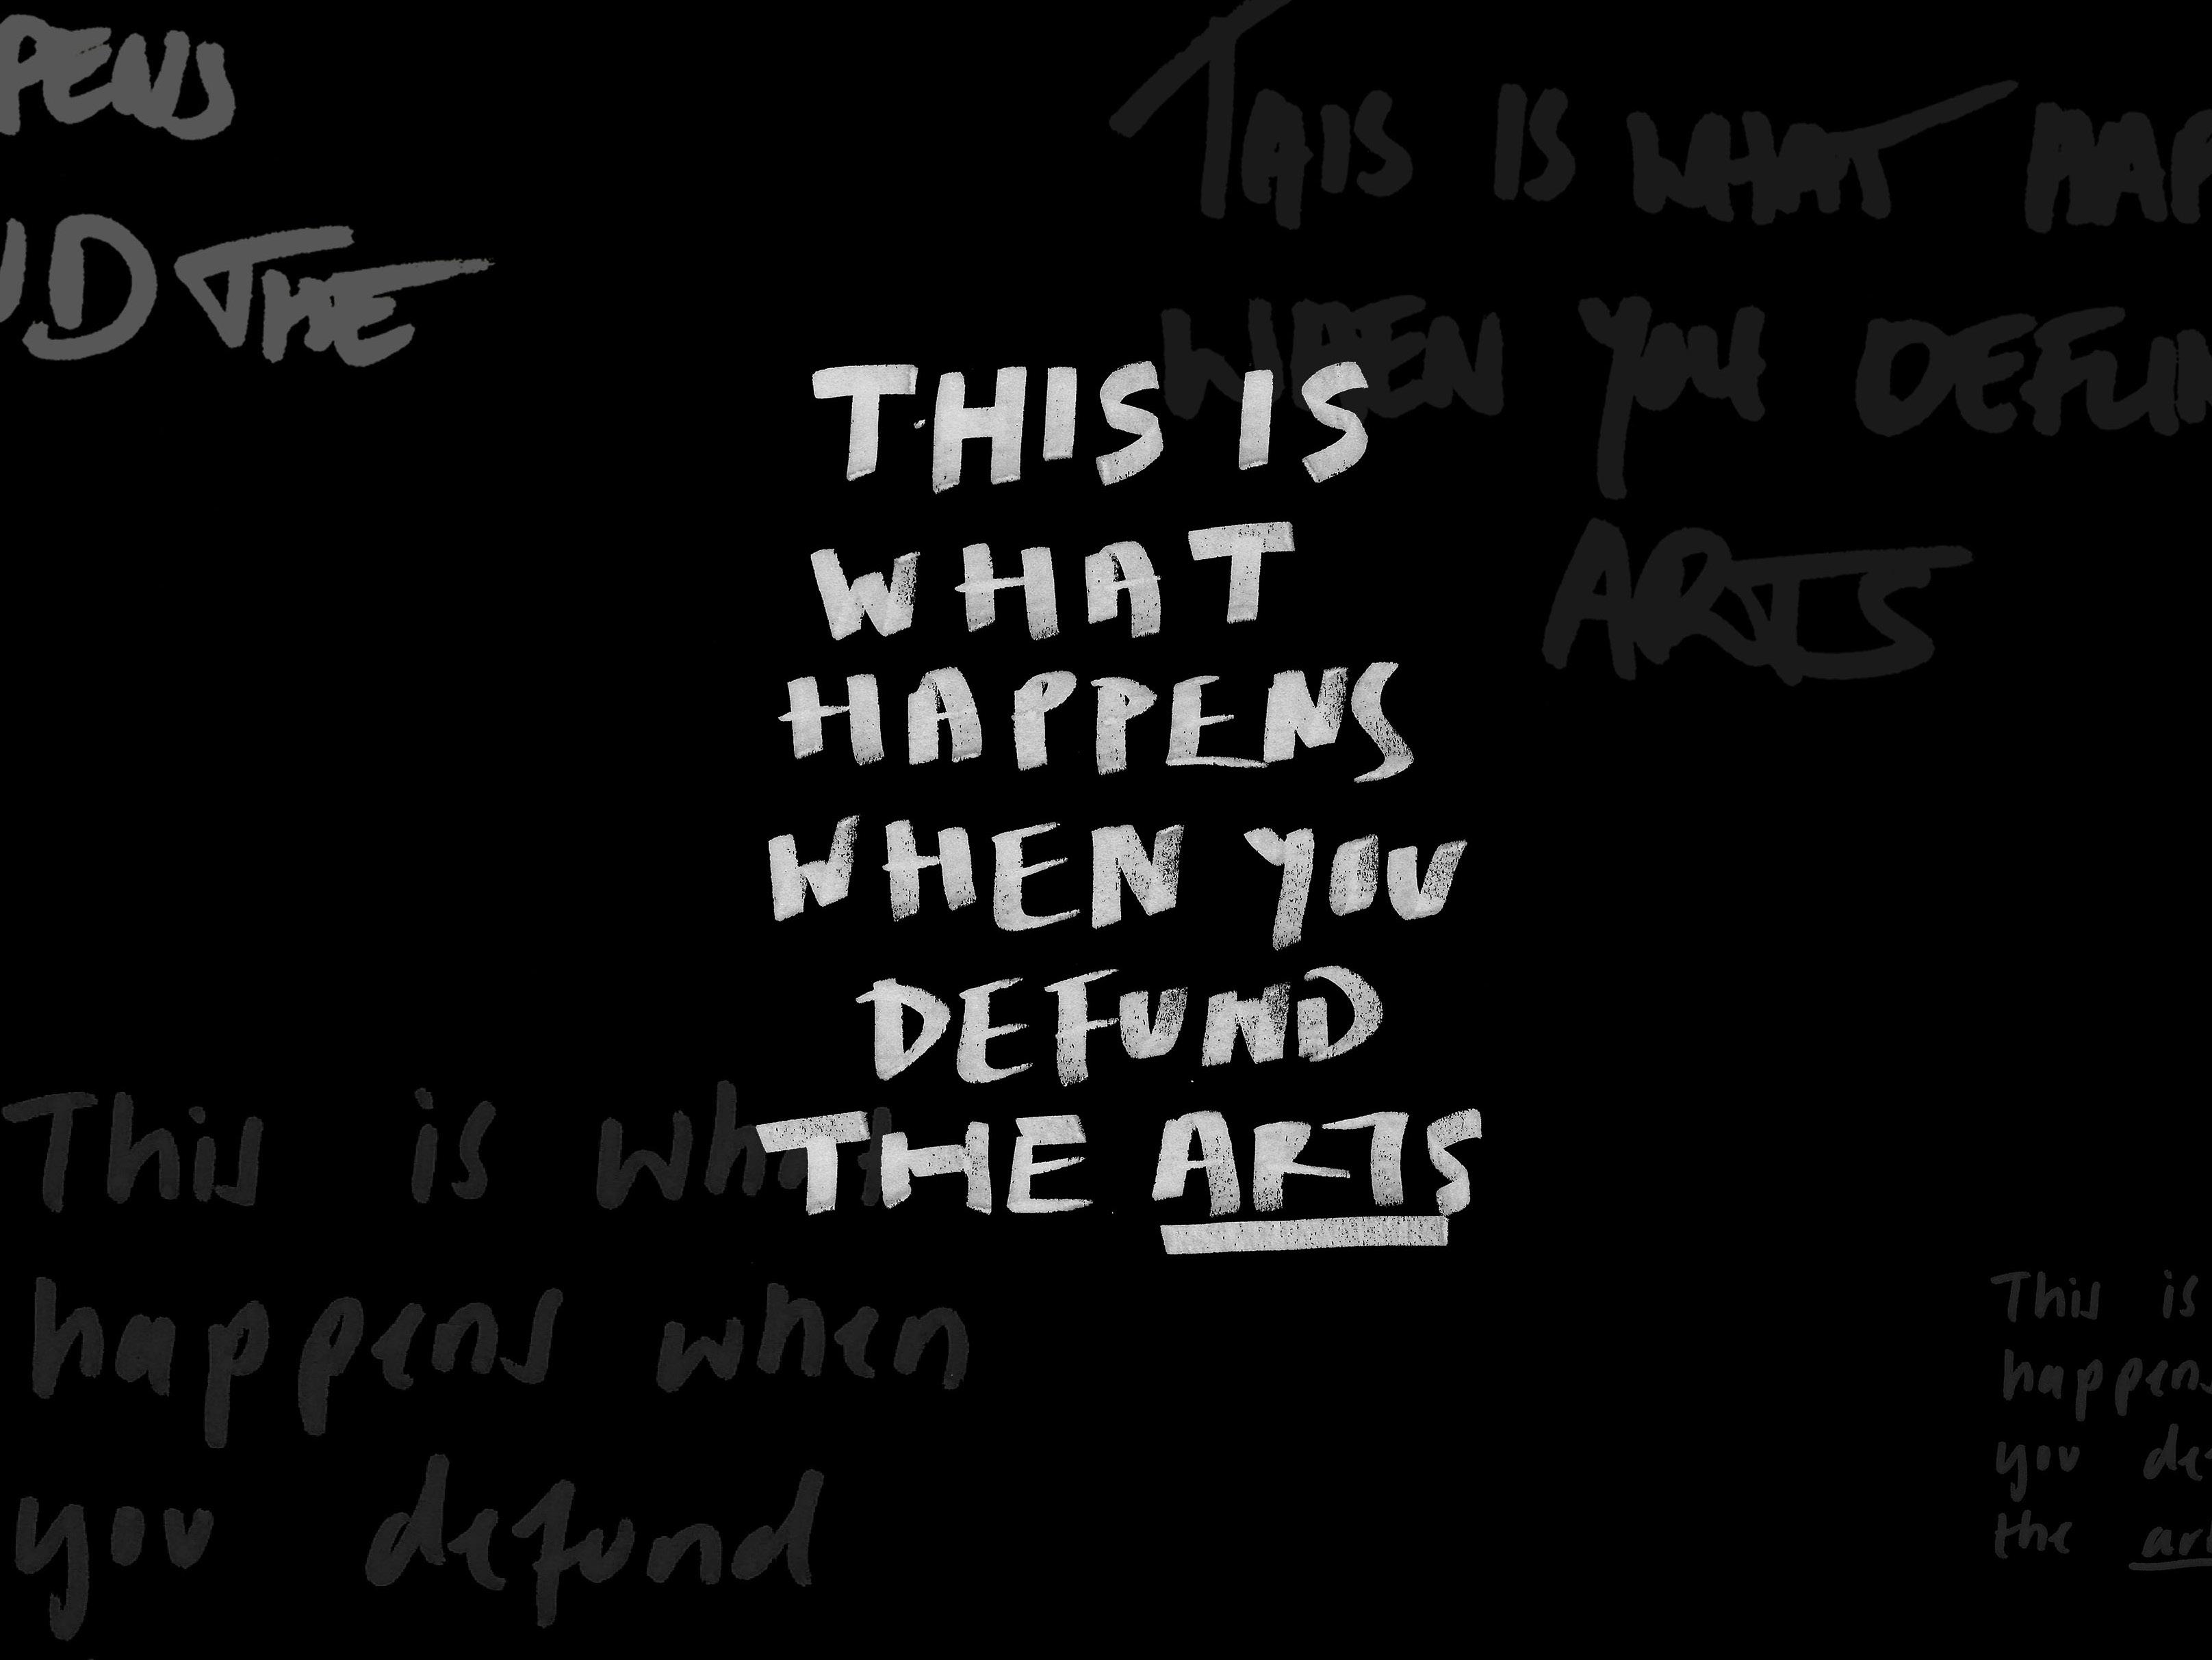 PENS
D THE
THIS IS WHAT HAP
WHEN YOU DEFUN
ARTS
THIS IS
WHAT
HAPPENS
WHEN YOU
DEFUND
THE ARTS
This is what
happens when
you defund
This is
happens
you de
the art